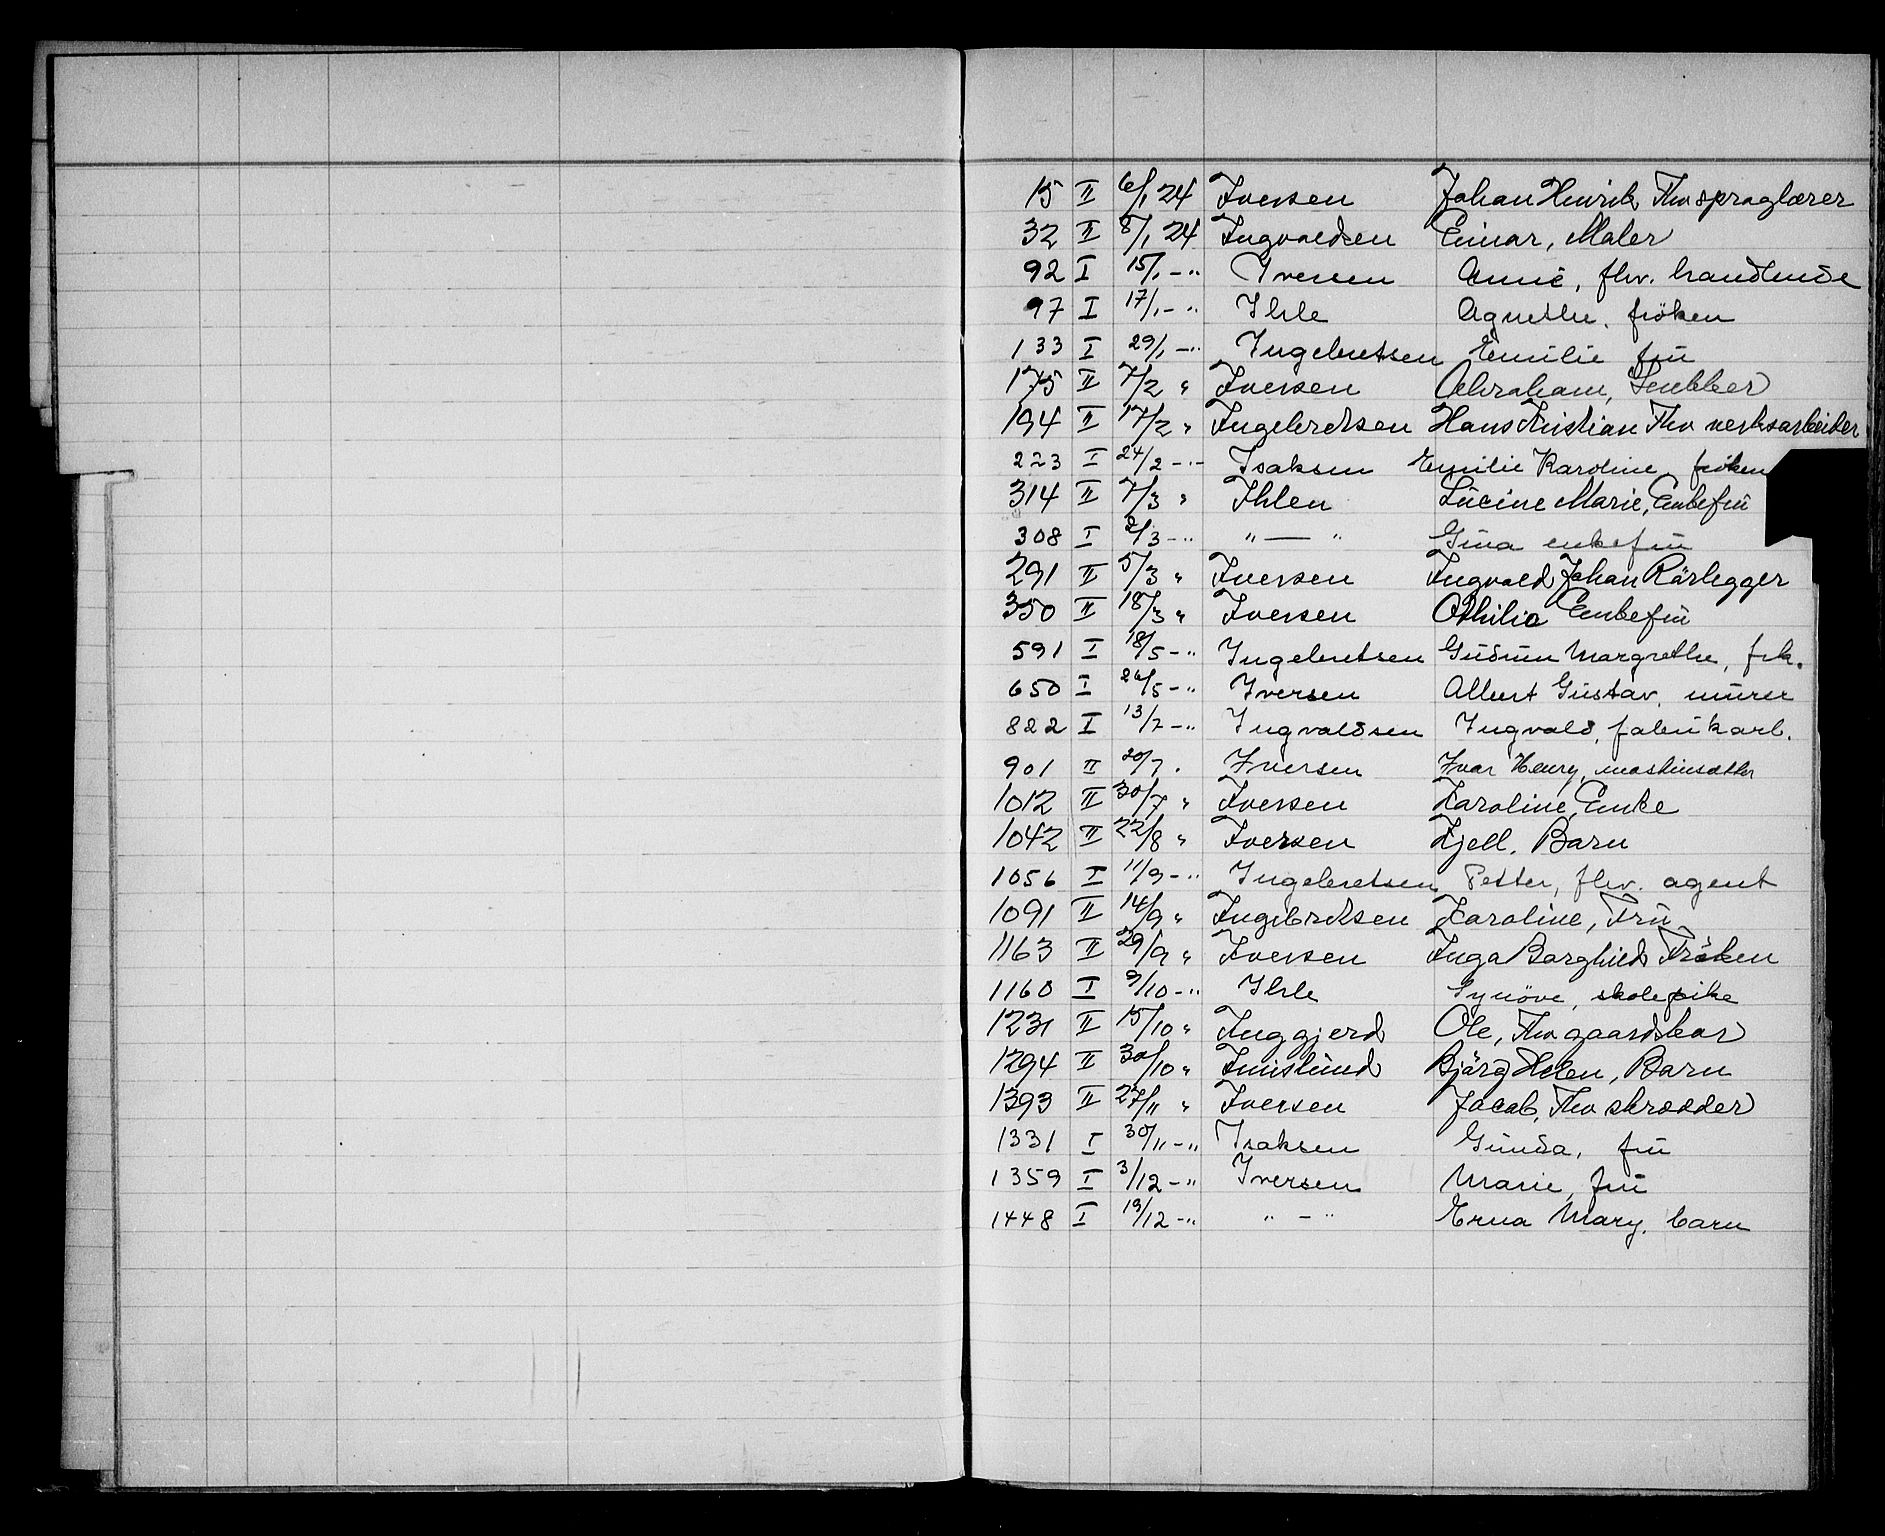 15 II 6/1 24 Iversen Johan Henrik Fhv spraglærer
32 II 8/1 24 Ingvaldsen Einar, Maler
92 I 15/1 - " Iversen Annie, fhv. handlende
97 I 17/1 - " Ihle Agnethe, fröken
133 I 29/1 - " Ingebretsen Emilie frü
175 II 7/2 " Iversen Abraham, Snekker
194 II 17/2 " Ingebretsen Hans Kristian Fhv verksarbeider
223 I 24/2 - " - Isaksen Emilie Karoline, fröken
314 II 7/3 " Ihlen Lücine Marie, Enkefrü
308 I 2/3 - " " — " Gina enkefrü
291 II 5/3 " Iversen Ingvald Johan Rörlegger
350 II 18/3 " Iversen Othilie Enkefrü
591 I 18/5 - " Ingebretsen Gudrun Margrethe, frk.
650 I 26/5 - " Iversen Albert Güstav, mürer
822 I 13/7 - " Ingvaldsen Ingvald, fabrikarb.
901 II 20/7 . Iversen Ivar Henry, maskinsetter
1012 II 30/7 " Iversen Karoline, Enke
1042 II 22/8 " Iversen Kjell. Barn
1056 I 11/9 - " Ingebretsen Petter, fhv. agent
1091 II 14/9 " Ingebretsen Karoline, Frü
1163 II 29/9 " Iversen Inga Borghild Fröken
1160 I 9/10 - " Ihle Synöve, skolepike
1231 II 15/10 " Inggjerd Ole, Fhv gaardskar
1294 II 30/10 " Imislund Björg Helen, Barn
1393 II 27/11 " Iversen Jacob, Fhv skrædder
1331 I 30/11 - " Isaksen Günda, frü
1359 I 3/12 - " Iversen Marie, frü
1448 I 19/12 - " " - " Erna Mary, barn